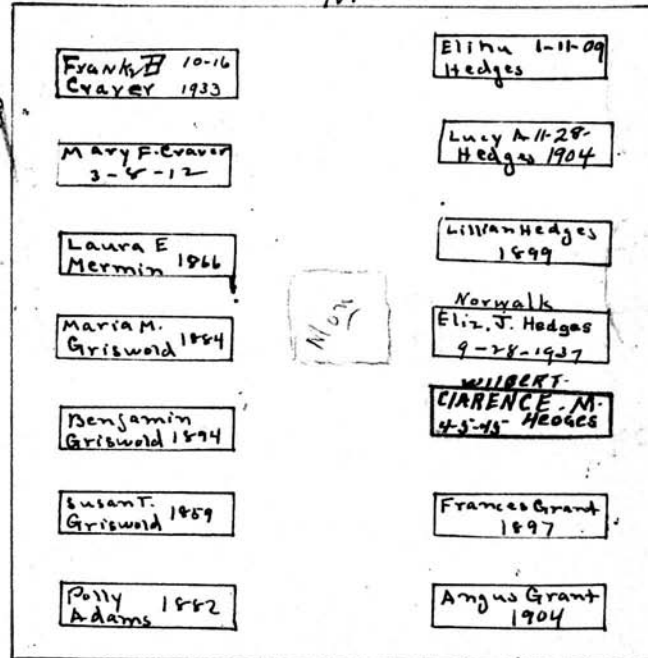 Frank B 10-16
Craver 1933
Mary F. Craver
3-8-12
Laura E
Mermin 1866
Maria M.
Griswold 1884
Benjamin
Griswold 1894
Susan T.
Griswold 1859
Polly
Adams 1882
Mon
Elihu 1-11-09
Hedges
Lucy A 11-28-
Hedges 1904
Lillian Hedges
1899
Norwalk
Eliz. J. Hedges
9-28-1937
WILBERT
CLARENCE. M.
4-5-45 HEDGES
Frances Grant
1897
Angus Grant
1904